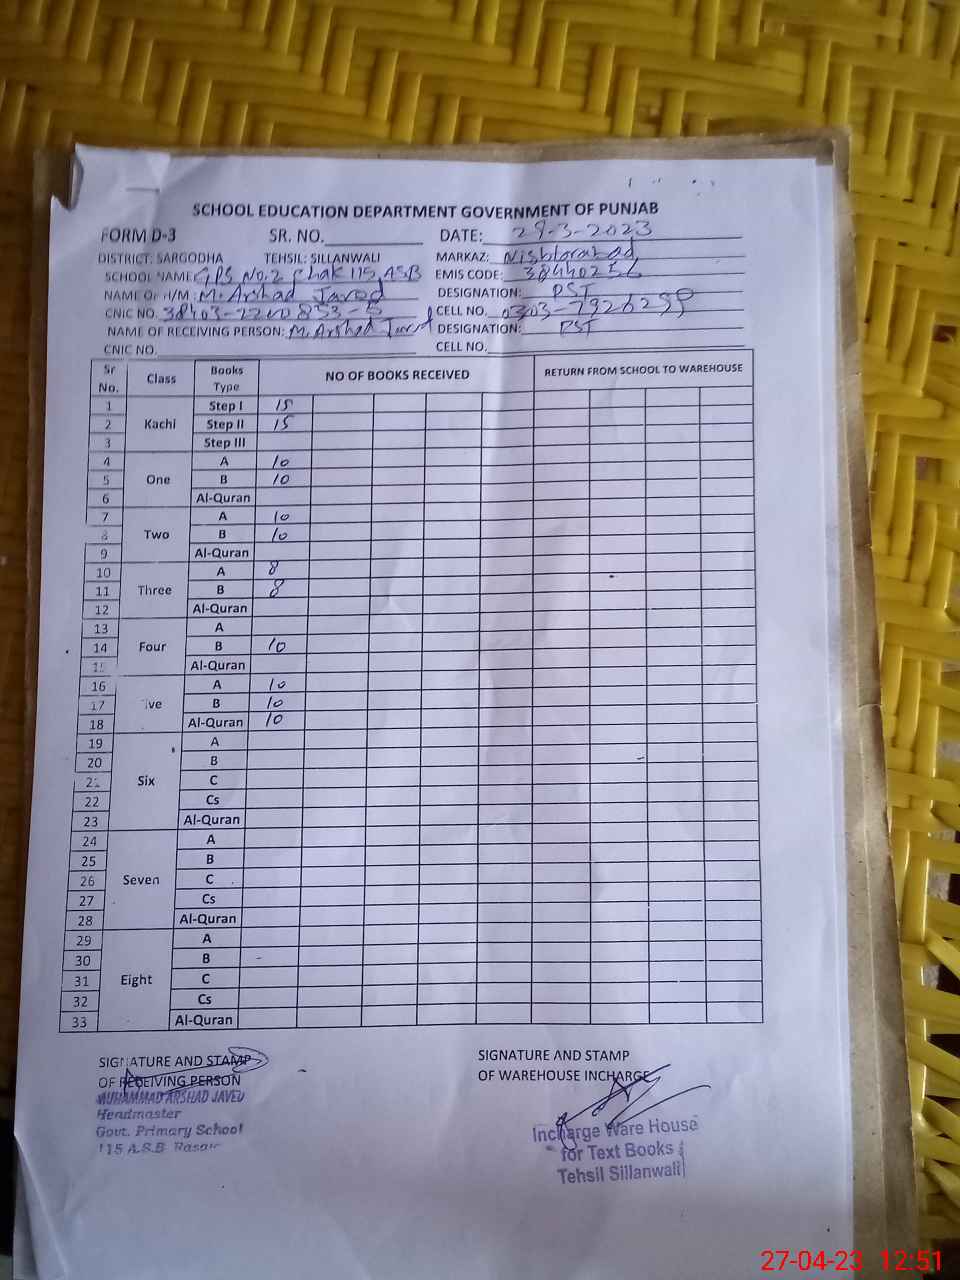 SCHOOL EDUCATION DEPARTMENT GOVERNMENT OF PUNJAB
FORM D-3 SR. NO. DATE: 29-3-2023
DISTRICT: SARGODHA TEHSIL: SILLANWALI MARKAZ:
SCHOOL NAME: GPS No.2 Chak 115 ASB EMIS CODE: 38440256
NAME OF H/M: M. Arshad Javed DESIGNATION: PST
CNIC NO. CELL NO.
NAME OF RECEIVING PERSON: M. Arshad Javed DESIGNATION: PST
CNIC NO. CELL NO.
Sr No. Class Books Type NO OF BOOKS RECEIVED RETURN FROM SCHOOL TO WAREHOUSE
1 Kachi Step I 15
2 Step II 15
3 Step III
4 One A 10
5 B 10
6 Al-Quran
7 Two A 10
8 B 10
9 Al-Quran
10 Three A 8
11 B 8
12 Al-Quran
13 Four A
14 B 10
15 Al-Quran
16 ive A 10
17 B 10
18 Al-Quran 10
19 Six A
20 B
21 C
22 Cs
23 Al-Quran
24 Seven A
25 B
26 C
27 Cs
28 Al-Quran
29 Eight A
30 B
31 C
32 Cs
33 Al-Quran
SIGNATURE AND STAMP
OF RECEIVING PERSON
MUHAMMAD ARSHAD JAVED
Headmaster
Govt. Primary School
115 A.S.B
SIGNATURE AND STAMP
OF WAREHOUSE INCHARGE
Incharge Ware House
for Text Books
Tehsil Sillanwali
27-04-23 12:51